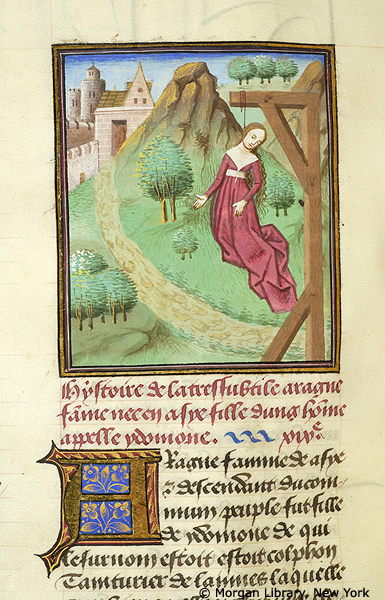 Hystoire de la tressubtile aragne
fame nee en asye fille dung home
appelle ydomone. xvije
Aragne famme de asye
descendant du com
mum peuple fut fille
de ydomone de qui
le surnom estoit estoit colphon
Tainturier de lainnes laquelle
© Morgan Library, New York